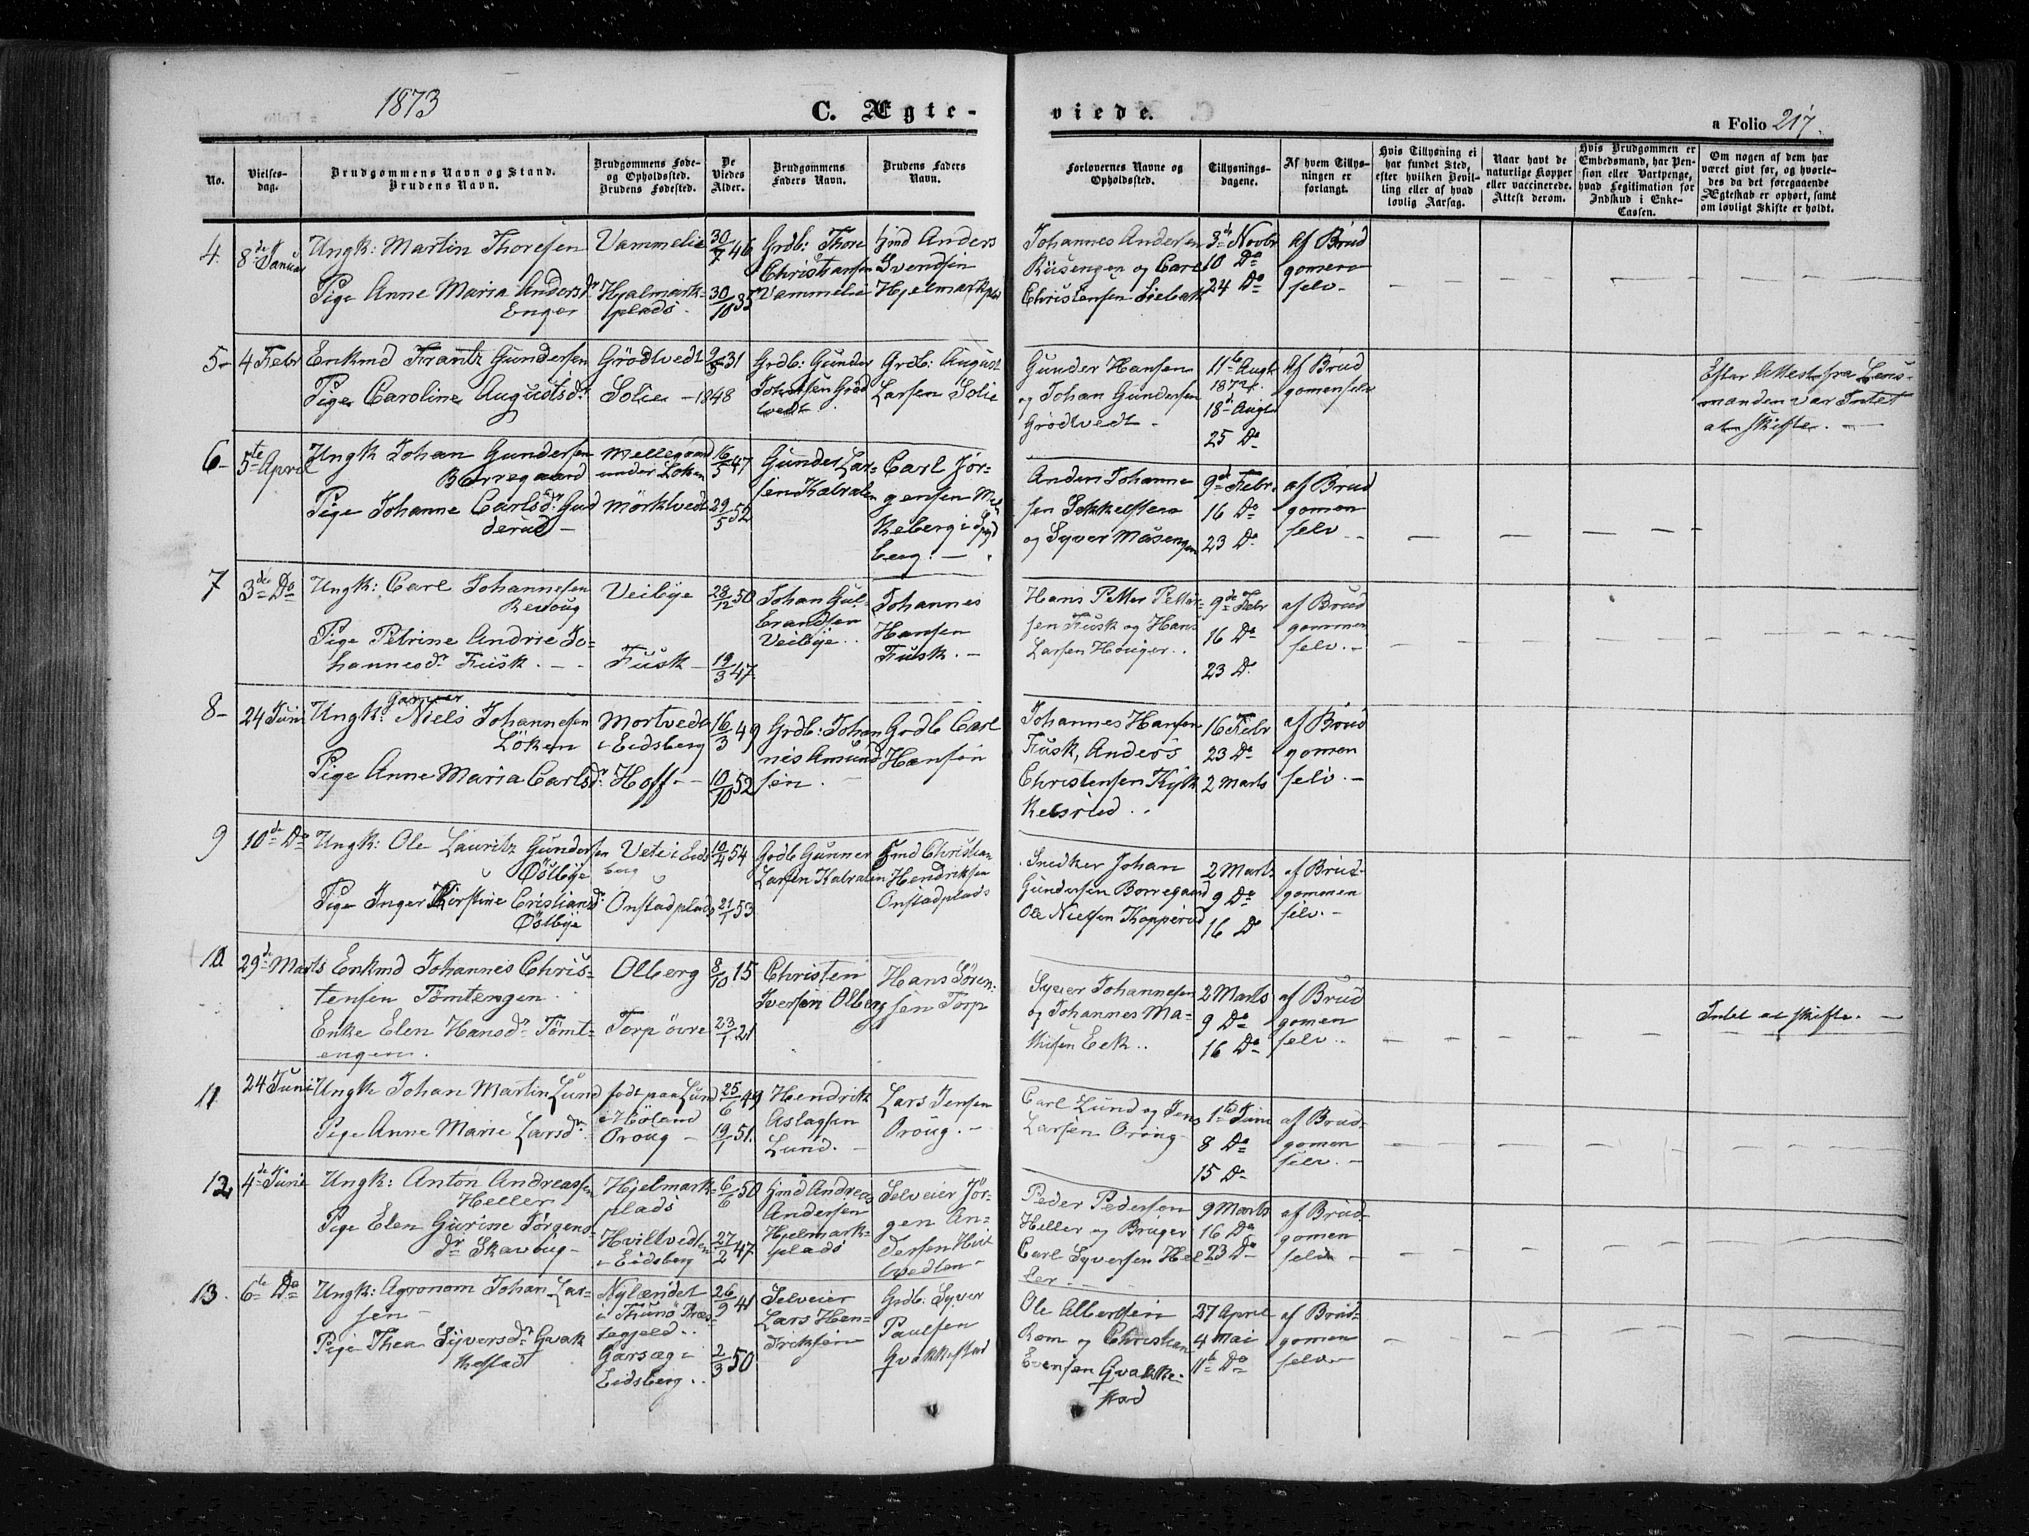 1873
C. Ægte-
viede.
a Folio 217.
No.
Vielses-
dag.
Brudgommens Navn og Stand.
Brudens Navn.
Brudgommens Føde-
og Opholdssted.
Brudens Fødested.
De
Viedes
Alder.
Brudgommens
Faders Navn.
Brudens Faders
Navn.
Forlovernes Navne og
Opholdssted.
Tillysnings-
dagene.
Af hvem Tillys-
ningen er
forlangt.
Hvis Tillysning ei
har fundet Sted,
efter hvilken Bevil-
ling eller af hvad
lovlig Aarsag.
Naar havt de
naturlige Kopper
eller vaccinerede.
Attest derom.
Hvis Brudgommen er
Embedsmand, har Pen-
sion eller Vartpenge,
hvad Legitimation for
Indskud i Enke-
Cassen.
Om nogen af dem har
været givt før, og hvorle-
des da det foregaaende
Ægteskab er ophørt, samt
om lovligt Skifte er holdt.
4.
8de Januar
Ungk: Martin Thoresen
Pige Anne Maria Andersdr
Enger
Vammelie
Hjelmark-
plads.
30/7 46
30/10 35
Grdb: Thore
Christiansen
Vammelie
Hmd Anders
Svendsen
Hjelmarkpld
Johannes Andersen
og Carel
Christensen
3d Novbr
10 Do
24 Do
Af Brud
gomen
selv
5-
4 Febr
Enkmd Frantz Gundersen
Pige Caroline Augustsdr
Grödtvedt
Solie
2/5 31
1848
Grdb: Gunder
Johansen Gröd
tvedt
Grdb: August
Larsen Solie
Gunder Hansen
og Johan Gundersen
Grödtvedt -
11te Augt
1872.
18d Augt
25 Do
Af Brud
gomen selv
Efter Attest fra Lens-
manden var Intet
at skifte. -
6-
5te April
Ungk Johan Gundersen
Borregaard
Pige Johanne Carlsdr Gud
derud -
Mellegaard
under Løken
Mörktvedt
16/5 47
29/5 52
Gunder Lar-
sen Kabralen
Carl Jör-
gensen
keberg i Spyd
berg. -
Anders Johanne
sen
og Syver Måsengen
9de Febr.
16 Do
23 Do
af Brud
gomen
selv -
7
3de Do
Ungk: Carl Johannesen
Revoug
Pige Petrine Andrie Jo-
hannesdr Fusk. -
Veibye
Fusk -
28/12 50
19/3 47.
Johan Gul-
brandsen
Veibye.
Johannes
Hansen
Fusk. -
Hans Petter Petter-
sen Fusk og Hans
Larsen Houger.
9de Febr
16 Do
23 Do
af Brud
gommen
selv. -
8-
24 Juni
Garver
Ungk: Niels Johannesen
Löken
Pige Anne Maria Carlsdr
Mortvedt
i Eidsberg
Hoff -
16/3 49
10/10 52
Grdb: Johan
nes Amund
sen.
Grdb Carl
Hansen
Johannes Hansen
Fusk, Anders
Christensen Kyk
kelsrud
16 Febr
23 Do
2 Marts
af Brud
gomen
selv. -
9
10de Do
Ungk: Ole Lauritz Gundersen
Östbye
Pige Inger Kirstine Cristiansdr
Östbye
Vete i Eids
berg
Onstadplads
19/4 54
21/1 53
Grdb Gunner
Larsen Kabralen
Hmd Christian
Hendriksen
Onstadplads
Snedker Johan
Gundersen Borregaard
Ole Nielsen Kopperud
2 Marts
9 Do
16 Do
af Brud-
gommen
selv. -
10
29de Marts
Enkmd Johannes Chris-
tensen Tömtengen
Enke Elen Hansdr Tömt-
engen.
Olberg
Torp övre
8/10 15
23/1 21
Christen
Iversen Olberg
Hans Sören-
sen Torp
Syver Johannesen
og Johannes Ma-
thisen Eek.
2 Marts
9 Do
16 Do
af Brud
gomen
selv.
Intet at skifte. -
11
24 Juni
Ungk Johan Martin Lund
Pige Anne Marie Larsdr
født paa Lund
i Høland
Oroug -
25/6 49
19/1 51.
Hendrik
Aslagsen
Lund. -
Lars Jensen
Oroug. -
Carl Lund og Jens
Larsen Oroug
1te Juni
8 Do
15 Do
af Brud-
gomen
selv. -
12
4de Juni
Ungk: Anton Andreassen
Heller
Pige Elen Gurine Jörgens-
dr Skavoug -
Hjelmark-
plads
Hviltvedten
i Eidsberg
6/6 50
27/2 47
Hmd Andreas
Andersen
Hjelmark-
plads
Selveier Jör-
gen An-
dersen Hvit
tvedten -
Peder Pedersen
Heller og Bruger
Carl Syversen Hel
ler -
9 Marts
16 Do
23 Do
af Brud-
gomen
selv -
13.
6te Do
Ungk: Agronom Johan Lar-
sen -
Pige Thea Syversdr Qvak
kestad
Nylændet
i Thunö Præs-
tegjeld.
Garsæg i
Eidsberg.
26/9 41
2/3 50
Selveier
Lars Hen-
driksen
Grdb: Syver
Paulsen
Qvakkestad
Ole Albertsen
Rom og Christian
Evensen Qvakke-
stad
27 April
4 Mai
11te Do
af Brud-
gomen
selv -